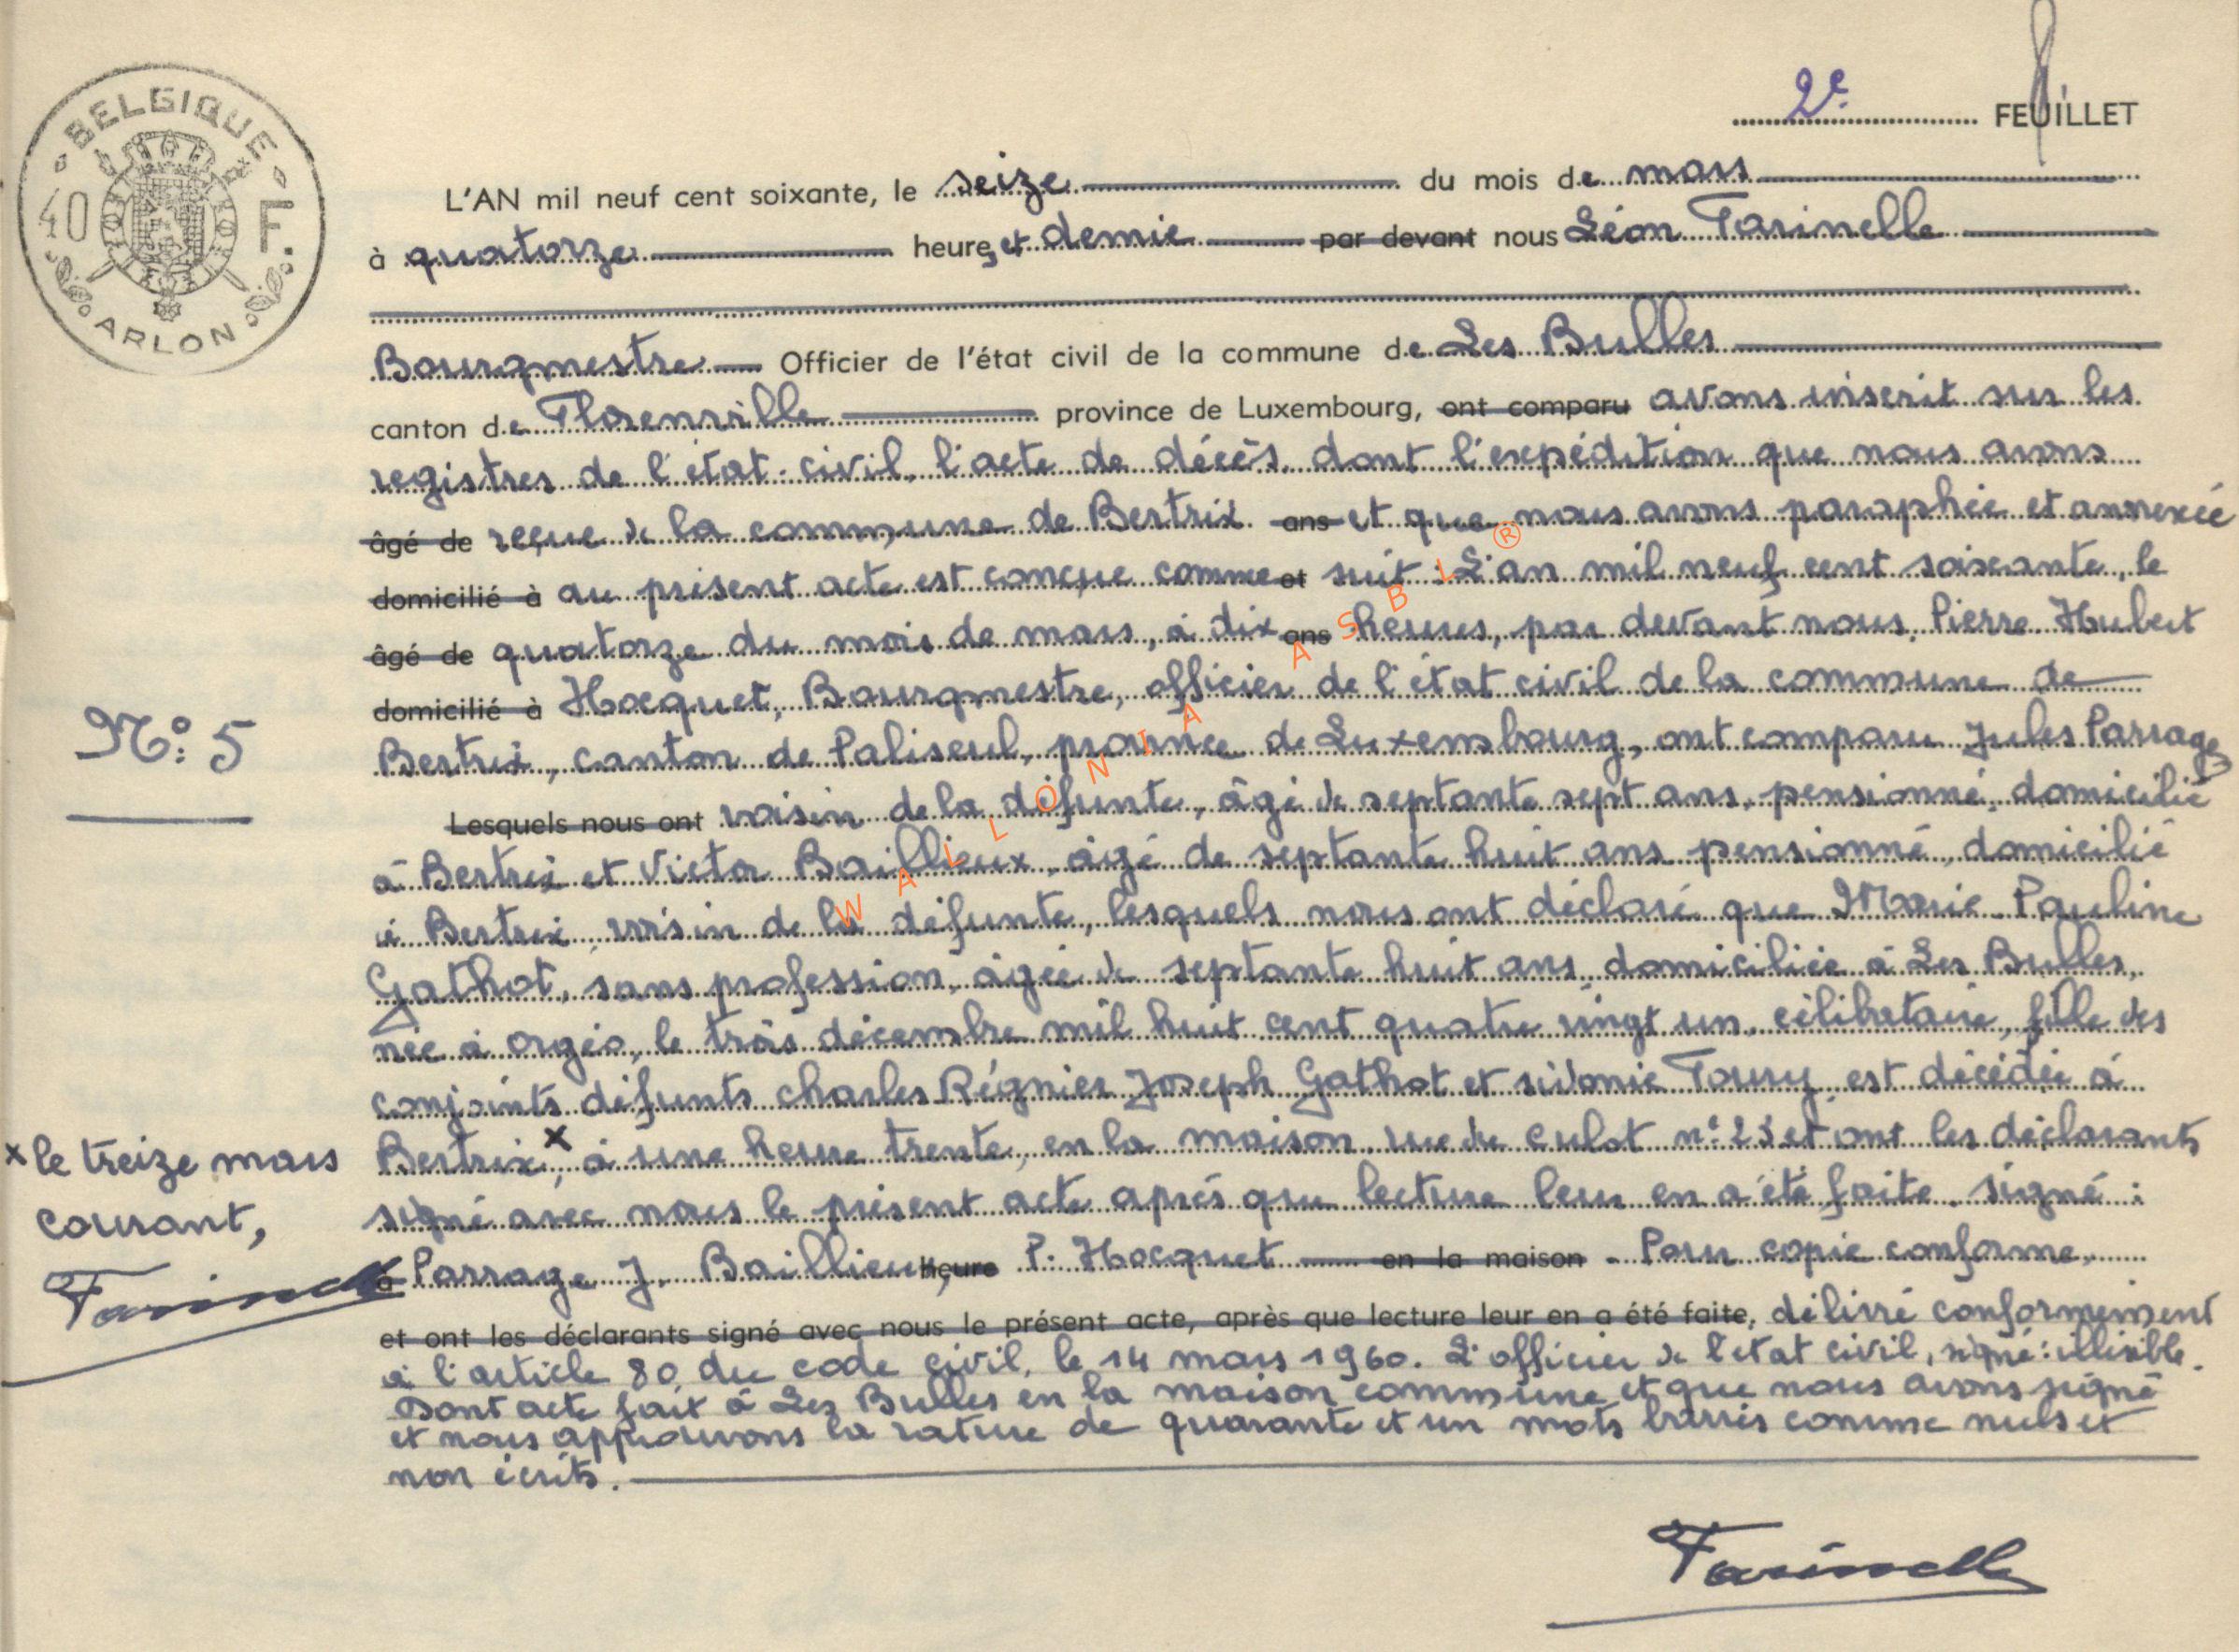 BELGIQUE
40 F.
ARLON
2e. FEUILLET
L'AN mil neuf cent soixante, le seize du mois de mars
à quatorze heures et demie par devant nous Léon Farinelle
Bourgmestre Officier de l'état civil de la commune de Les Bulles
canton de Florenville province de Luxembourg, ont comparu avons inscrit sur les
registres de l'état-civil, l'acte de décès, dont l'expédition que nous avons
âgé de reçue de la commune de Bertrix ans et que nous avons paraphée et annexée
domicilié à au présent acte est conçue comme et suit : L'an mil neuf cent soixante, le
âgé de quatorze du mois de mars, à dix ans heures, par devant nous, Pierre Hubert
domicilié à Hocquet, Bourgmestre, officier de l'état civil de la commune de
Bertrix, canton de Paliseul, province de Luxembourg, ont comparu Jules Parrage
Lesquels nous ont voisin de la défunte, âgé de septante sept ans, pensionné, domicilié
à Bertrix et Victor Baillieux, âgé de septante huit ans pensionné, domicilié
à Bertrix, voisin de la défunte, lesquels nous ont déclaré que Marie Pauline
Gathot, sans profession, âgée de septante huit ans, domiciliée à Les Bulles,
née à Orgéo, le trois décembre mil huit cent quatre vingt un, célibataire, fille des
conjoints défunts Charles Régnier Joseph Gathot et Sidonie Toury, est décédée à
Bertrix x, à une heure trente, en la maison, rue du culot n° 23 et ont les déclarants
signé avec nous le présent acte après que lecture leur en a été faite. signé :
à Parrage J. Baillieux, heure P. Hocquet en la maison - Pour copie conforme,
et ont les déclarants signé avec nous le présent acte, après que lecture leur en a été faite, délivré conformément
à l'article 80 du code civil, le 14 mars 1960. L'officier de l'état civil, signé : illisible.
Dont acte fait à Les Bulles en la maison commune et que nous avons signé
et nous approuvons la rature de quarante et un mots barrés comme nuls et
non écrits.
N°: 5
x le treize mars
courant,
Farinelle
Farinelle
WALLONIA ASBL ®